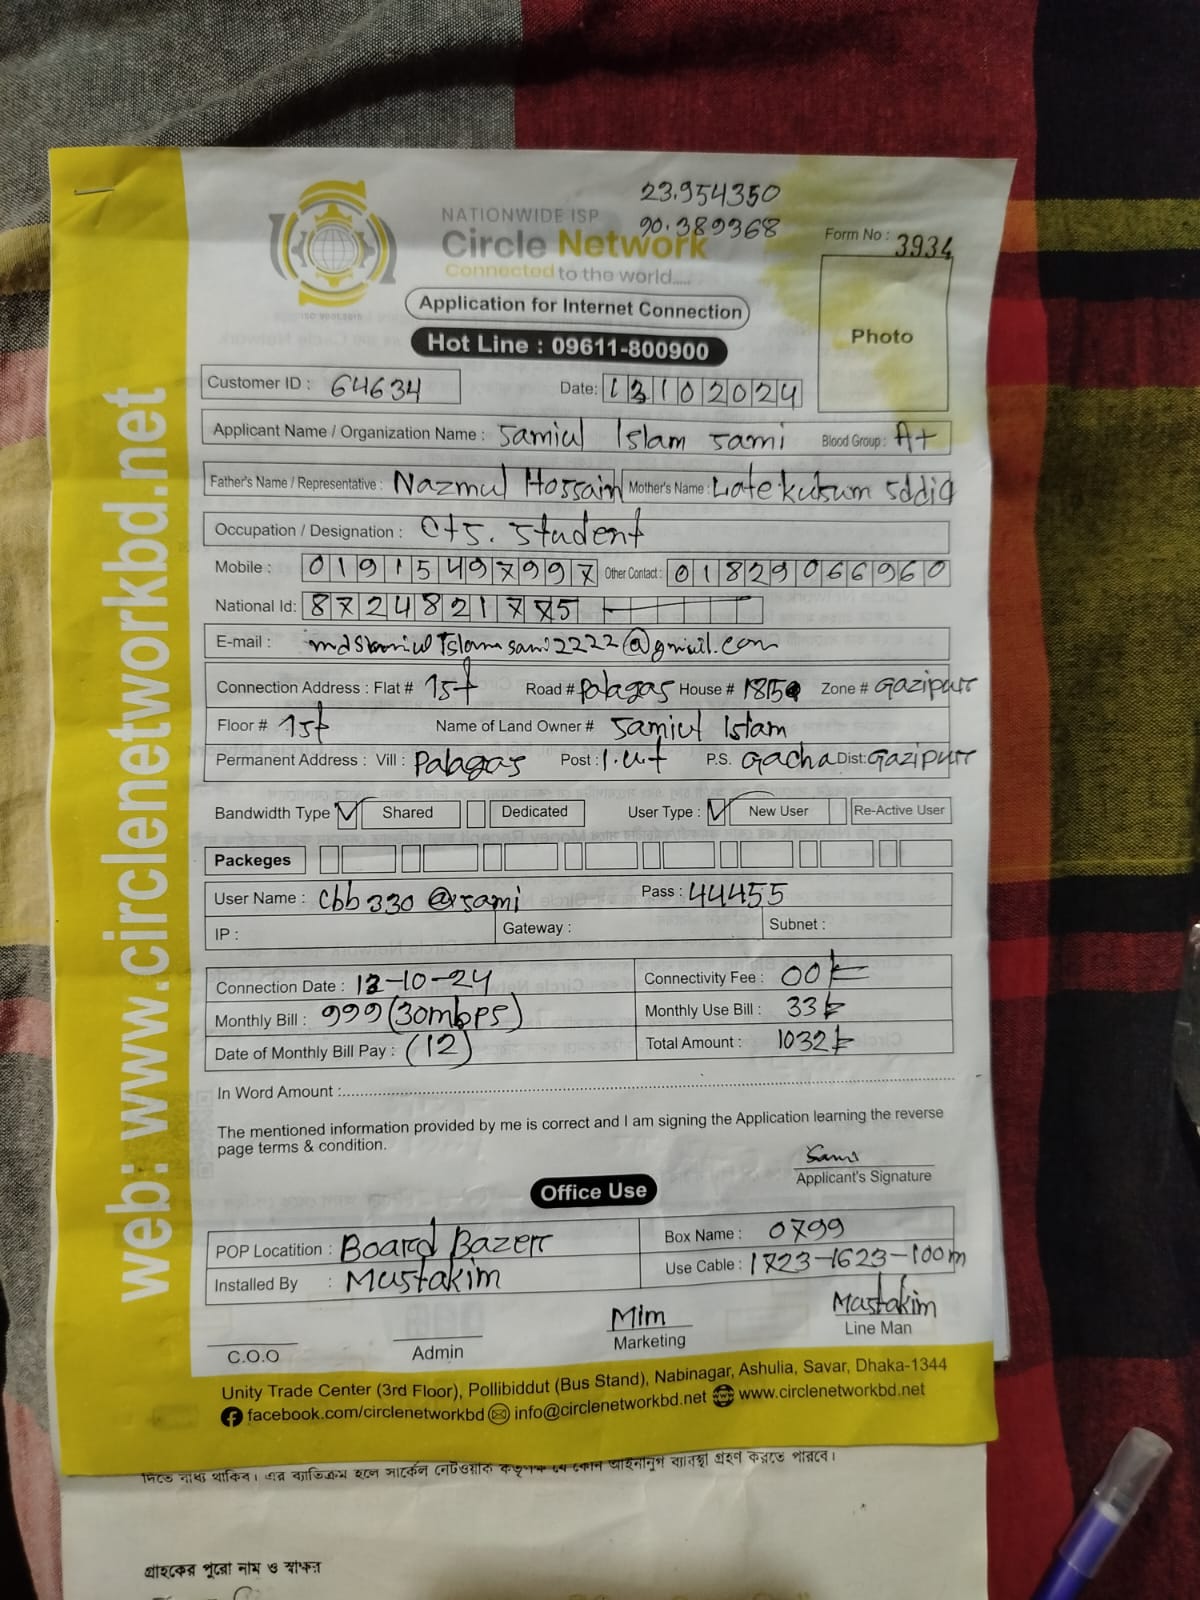 23.954350
90.389368
NATIONWIDE ISP
Circle Network
Connected to the world.....
Form No : 3934
ISO 9001:2015
Application for Internet Connection
Hot Line : 09611-800900
Photo
Customer ID : 64634 Date: 13102024
Applicant Name / Organization Name : Samiul Islam Sami Blood Group : A+
Father's Name / Representative : Nazmul Hossain Mother's Name : Late kulsum
Occupation / Designation : Student
Mobile : 01915497997 Other Contact : 01829066960
National Id: 8724821775
E-mail :
Connection Address : Flat # 1st Road # Palagas House # Zone # Gazipur
Floor # 1st Name of Land Owner # Samiul Islam
Permanent Address : Vill : Palagas Post : P.S. Gacha Dist: Gazipur
Bandwidth Type Shared Dedicated User Type : New User Re-Active User
Packeges
User Name : cbb330@sami Pass : 44455
IP : Gateway : Subnet :
Connection Date : 13-10-24 Connectivity Fee : 00
Monthly Bill : 999 (30mbps) Monthly Use Bill : 33
Date of Monthly Bill Pay : (12) Total Amount : 1032
In Word Amount :
The mentioned information provided by me is correct and I am signing the Application learning the reverse
page terms & condition.
Sami
Applicant's Signature
Office Use
POP Locatition : Board Bazerr Box Name : 0799
Installed By : Mustakim Use Cable : 1723-1623-100m
C.O.O Admin Mim Marketing Mastakim Line Man
Unity Trade Center (3rd Floor), Pollibiddut (Bus Stand), Nabinagar, Ashulia, Savar, Dhaka-1344
facebook.com/circlenetworkbd info@circlenetworkbd.net www.circlenetworkbd.net
web: www.circlenetworkbd.net
দিতে বাধ্য থাকিব। এর ব্যতিক্রম হলে সার্কেল নেটওয়ার্ক কতৃপক্ষ যে কোন আইনানুগ ব্যাবস্থা গ্রহণ করতে পারবে।
গ্রাহকের পুরো নাম ও স্বাক্ষর